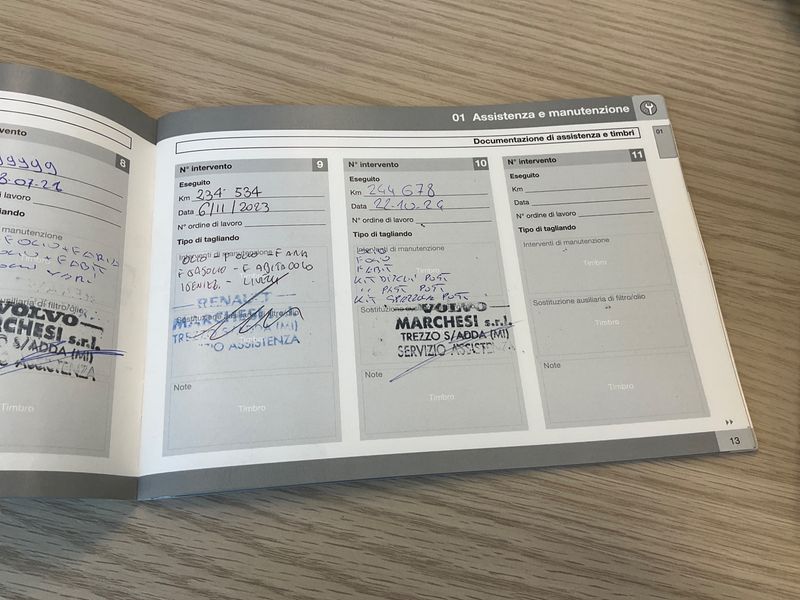 01 Assistenza e manutenzione
01
Documentazione di assistenza e timbri
8
di lavoro
tagliando
manutenzione
ausiliaria di filtro/olio
VOLVO
MARCHESI s.r.l.
S/ADDA (MI)
ASSISTENZA
Timbro
N° intervento 9
Eseguito
Km 234 534
Data 6/11/2023
N° ordine di lavoro
Tipo di tagliando
Interventi di manutenzione
OLIO F OLIO F ARIA
F GASOLIO - F ABITACOLO
RENAULT
Sostituzione ausiliaria di filtro/olio
TREZZO S/ADDA (MI)
SERVIZIO ASSISTENZA
Note
Timbro
N° intervento 10
Eseguito
Km 244 678
Data 22-10-24
N° ordine di lavoro
Tipo di tagliando
Interventi di manutenzione
OLIO
FOLIO
Timbro
FABIT
KIT DISCHI POST
KIT POST
Sostituzione ausiliaria di filtro/olio
VOLVO
MARCHESI s.r.l.
TREZZO S/ADDA (MI)
SERVIZIO ASSISTENZA
Note
Timbro
N° intervento 11
Eseguito
Km
Data
N° ordine di lavoro
Tipo di tagliando
Interventi di manutenzione
Timbro
Sostituzione ausiliaria di filtro/olio
Timbro
Note
Timbro
13